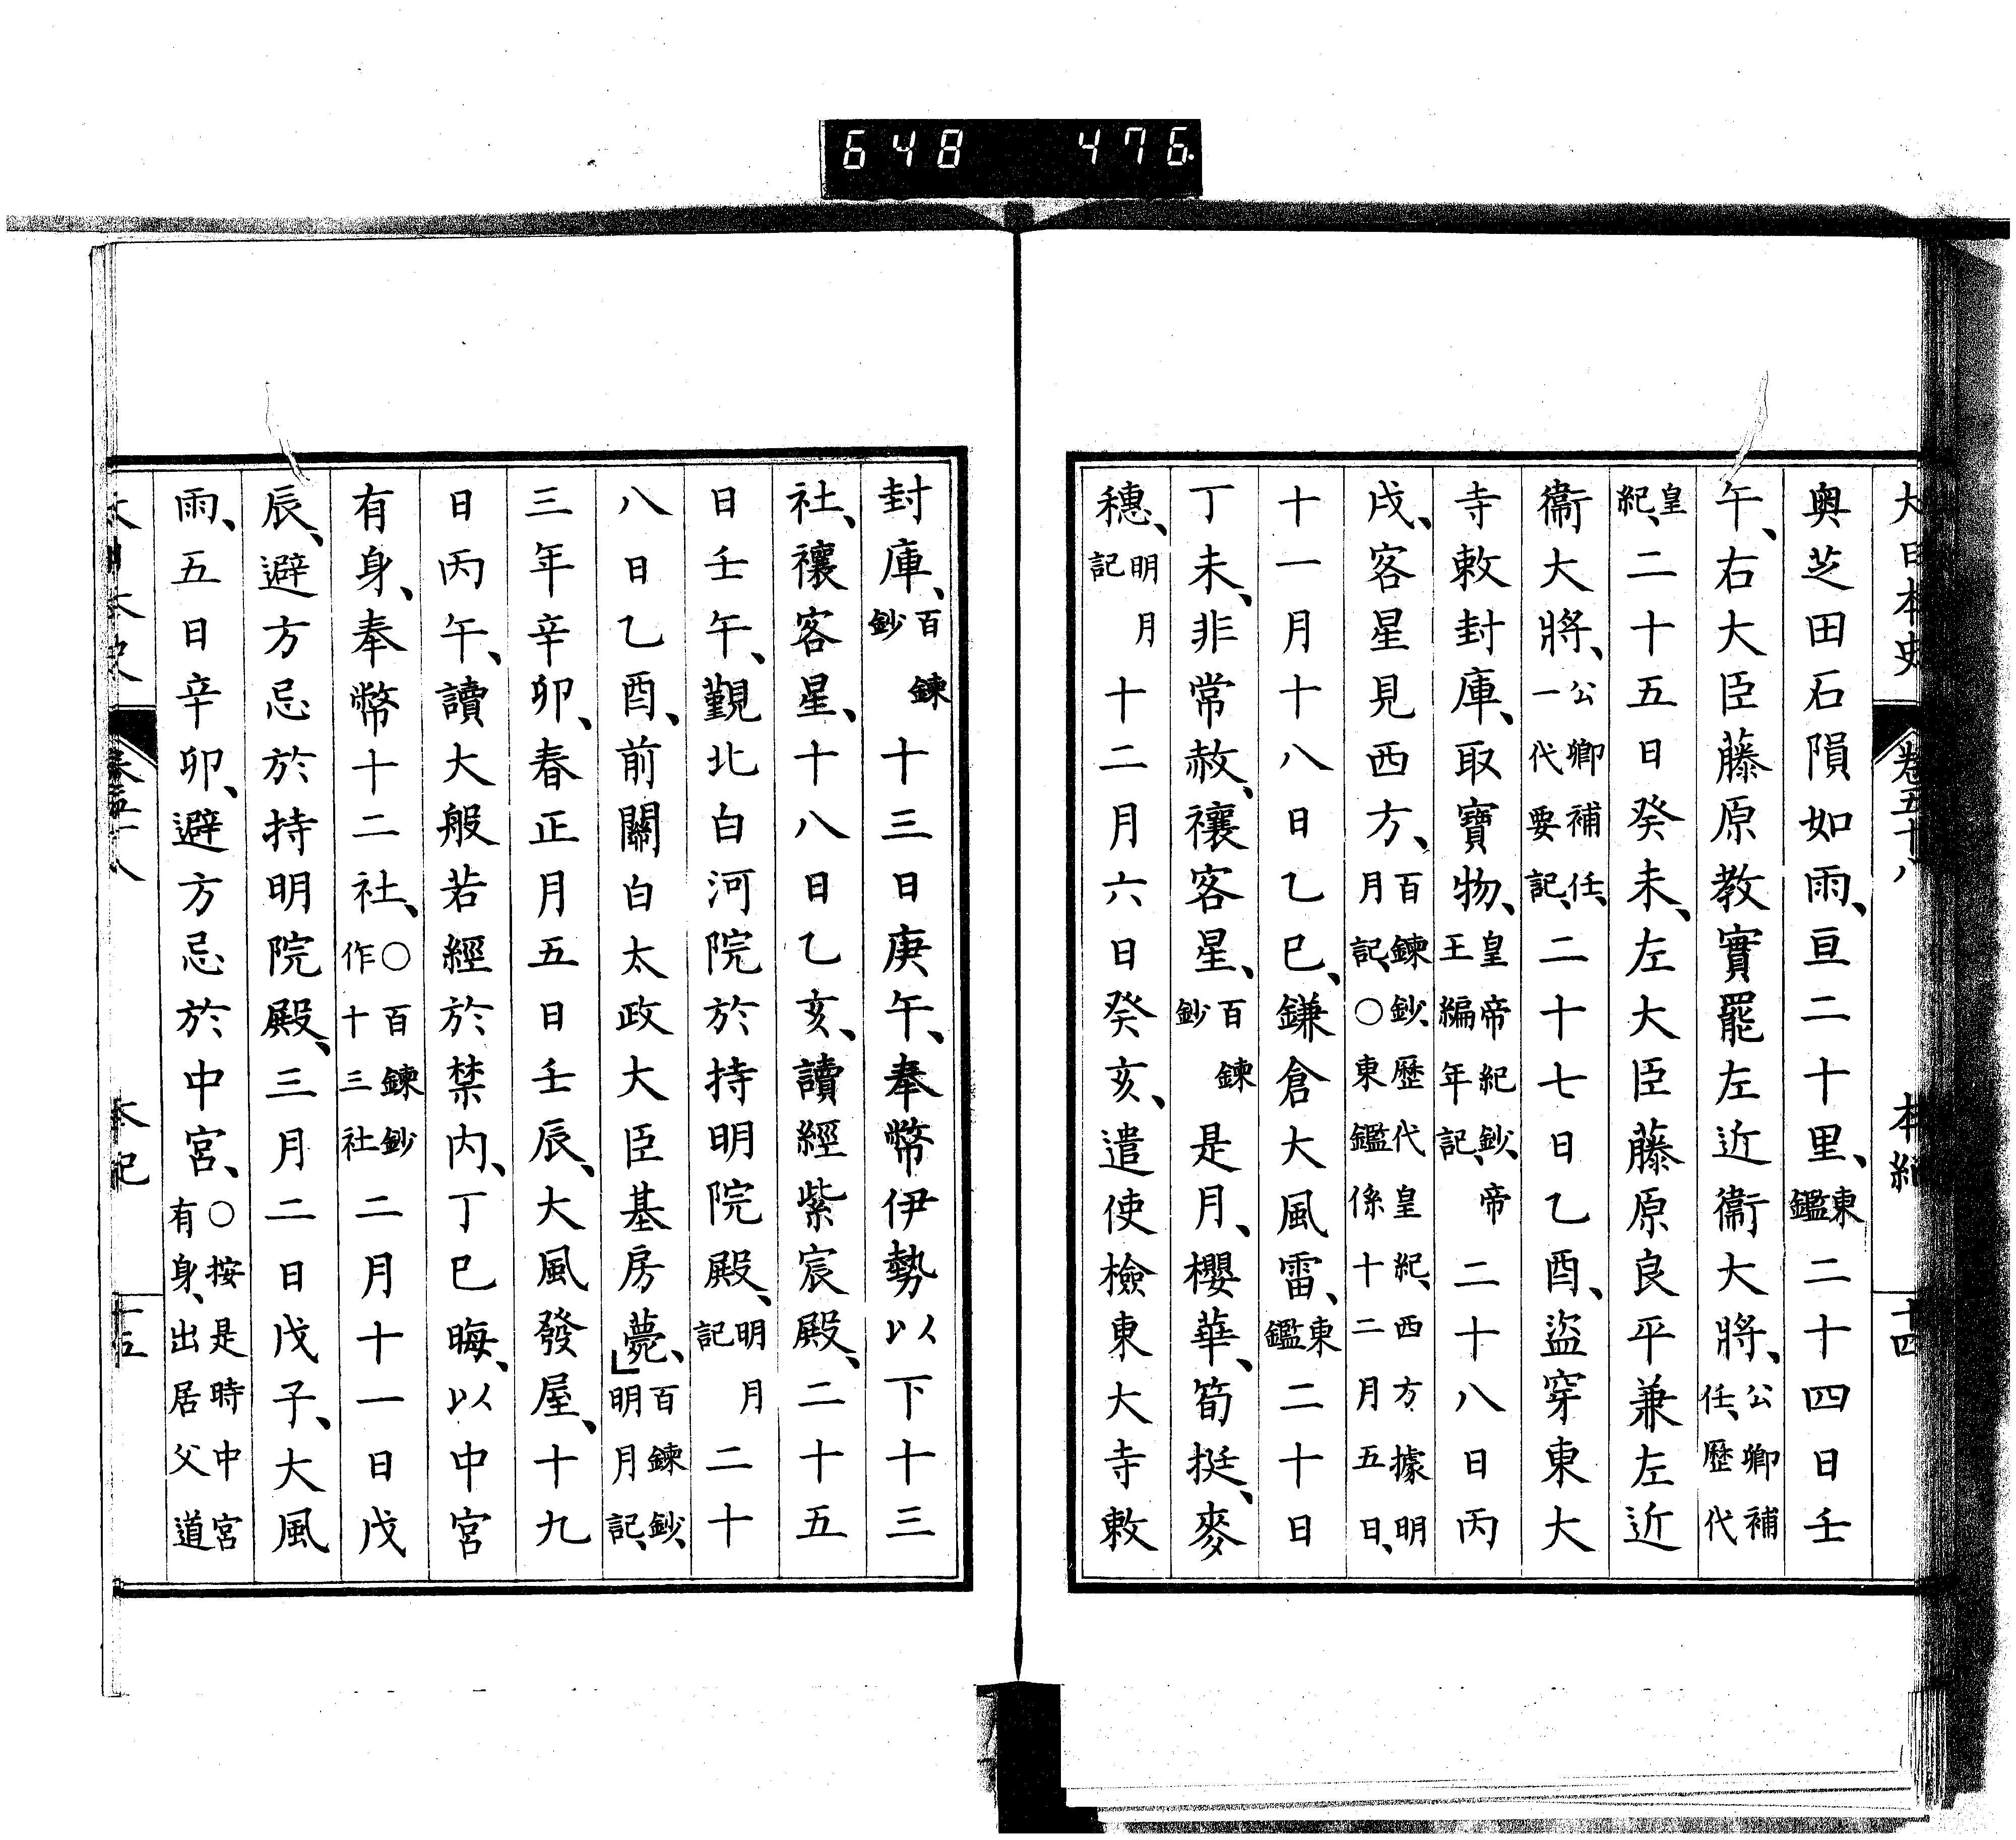 648 476.
大日本史 卷五十八 本紀 十四
奥芝田石隕如雨、亘二十里、東鑑二十四日壬
午、右大臣藤原教實罷左近衞大將、公卿補任、歷代
皇紀、二十五日癸未、左大臣藤原良平兼左近
衞大將、公卿補任、一代要記、二十七日乙酉、盜穿東大
寺敕封庫、取寶物、皇帝紀鈔、帝王編年記、二十八日丙
戌、客星見西方、百鍊鈔、歷代皇紀、西方據明月記、○東鑑係十二月五日、
十一月十八日乙巳、鎌倉大風雷、東鑑二十日
丁未、非常赦、禳客星、百鍊鈔是月、櫻華、筍挺、麥
穗、明月記十二月六日癸亥、遣使檢東大寺敕
封庫、百鍊鈔十三日庚午、奉幣伊勢以下十三
社、禳客星、十八日乙亥、讀經紫宸殿、二十五
日壬午、覲北白河院於持明院殿、明月記二十
八日乙酉、前關白太政大臣基房薨、百鍊鈔、明月記、
三年辛卯、春正月五日壬辰、大風發屋、十九
日丙午、讀大般若經於禁内、丁巳晦、以中宮
有身、奉幣十二社、○百鍊鈔作十三社二月十一日戊
辰、避方忌於持明院殿、三月二日戊子、大風
雨、五日辛卯、避方忌於中宮、○按是時中宮有身、出居父道